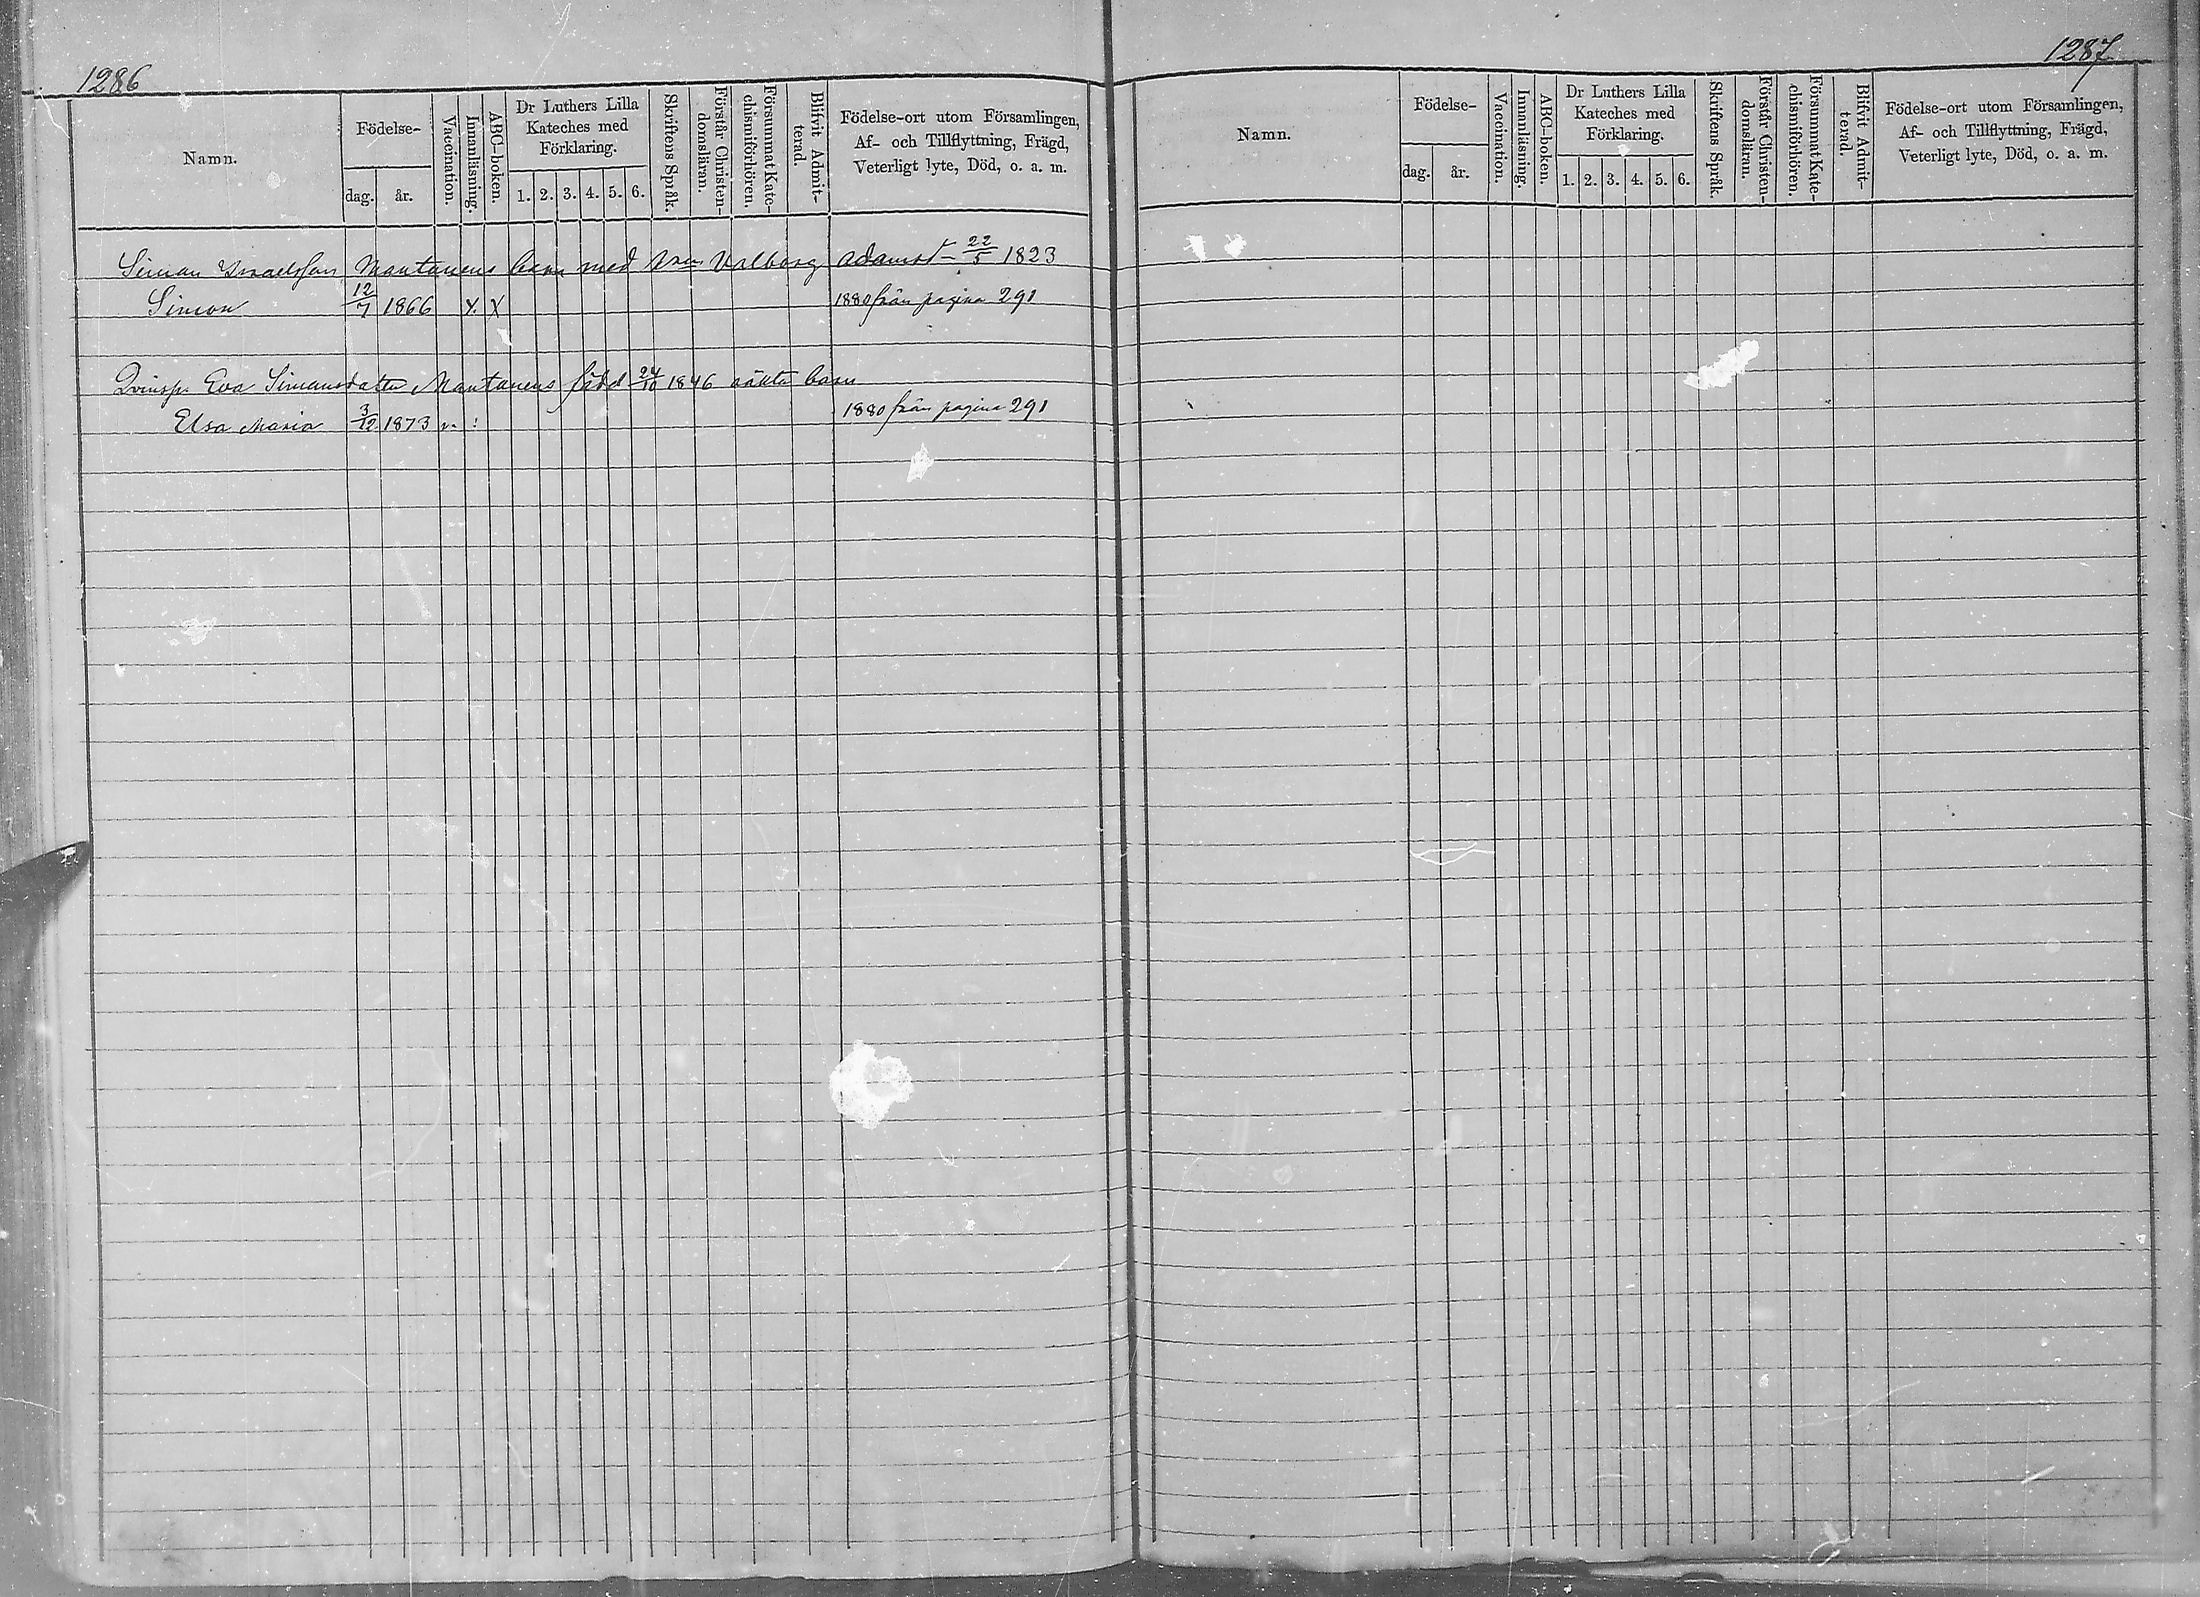 1286
Namn.
Födelse-
dag.
år.
Vaccination.
Innanläsning.
ABC-boken.
Dr Luthers Lilla
Kateches med
Förklaring.
1. 2. 3. 4. 5. 6.
Skriftens Språk.
Förstår Christen-
domsläran.
Försummat Kate-
chismiförhören.
Blifvit Admit-
terad.
Födelse-ort utom Församlingen,
Af- och Tillflyttning, Frägd,
Veterligt lyte, Död, o. a. m.
Simon Israelsson Mantanens barn med Valborg Adamsd 22/5 1823
Simon 12/7 1866 X. X 1880 från pagina 291
Qvinsp. Eva Simonsdotter Mantanens född 24/10 1846 oäkta barn
Elsa Maria 3/12 1873 v. : 1880 från pagina 291
1287.
Namn.
Födelse-
dag.
år.
Vaccination.
Innanläsning.
ABC-boken.
Dr Luthers Lilla
Kateches med
Förklaring.
1. 2. 3. 4. 5. 6.
Skriftens Språk.
Förstår Christen-
domsläran.
Försummat Kate-
chismiförhören.
Blifvit Admit-
terad.
Födelse-ort utom Församlingen,
Af- och Tillflyttning, Frägd,
Veterligt lyte, Död, o. a. m.